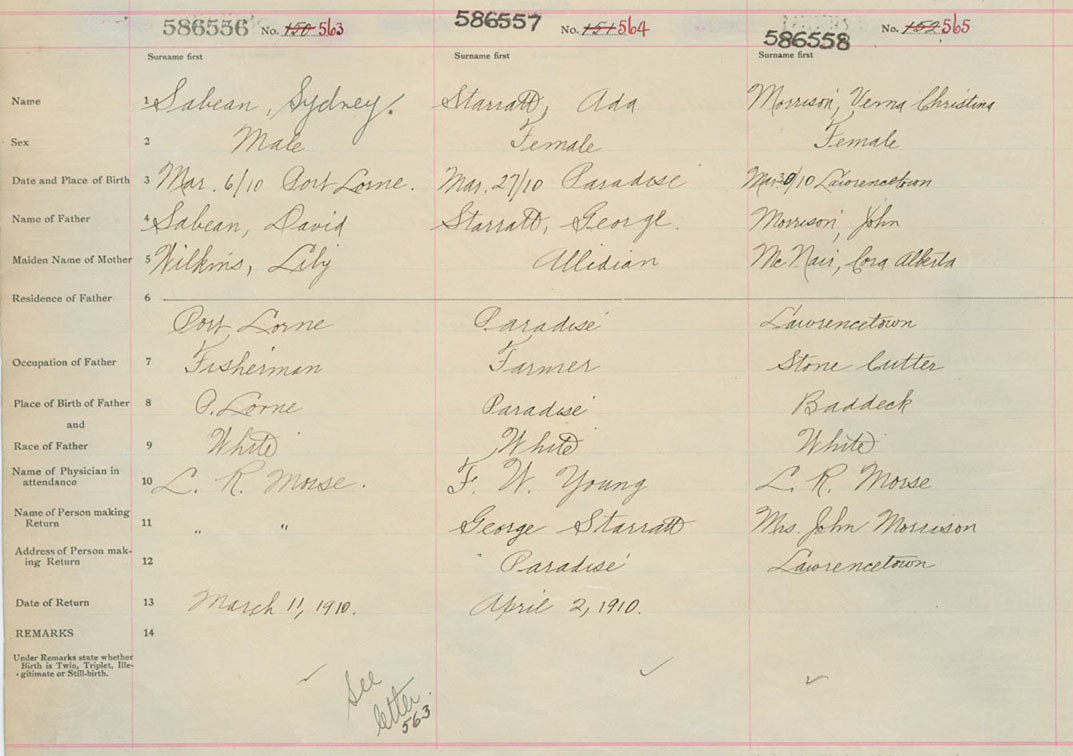 586556 No. 150 563 586557 No. 151 564 586558 No. 152 565
Surname first Surname first Surname first
Name 1 Sabean, Sydney. Starratt, Ada Morrison, Verna Christina
Sex 2 Male Female Female
Date and Place of Birth 3 Mar. 6/10 Port Lorne. Mar. 27/10 Paradise Mar 30/10 Lawrencetown
Name of Father 4 Sabean, David Starratt, George. Morrison, John
Maiden Name of Mother 5 Wilkins, Lily Allidian McNair, Cora Alberta
Residence of Father 6
Port Lorne Paradise Lawrencetown
Occupation of Father 7 Fisherman Farmer Stone Cutter
Place of Birth of Father 8 P. Lorne Paradise Baddeck
and
Race of Father 9 White White White
Name of Physician in
attendance 10 L. R. Morse. F. W. Young L. R. Morse
Name of Person making
Return 11 " " George Starratt Mrs. John Morrison
Address of Person mak-
ing Return 12 Paradise Lawrencetown
Date of Return 13 March 11, 1910. April 2, 1910.
REMARKS 14
Under Remarks state whether
Birth is Twin, Triplet, Ille-
gitimate or Still-birth.
See
letter
563